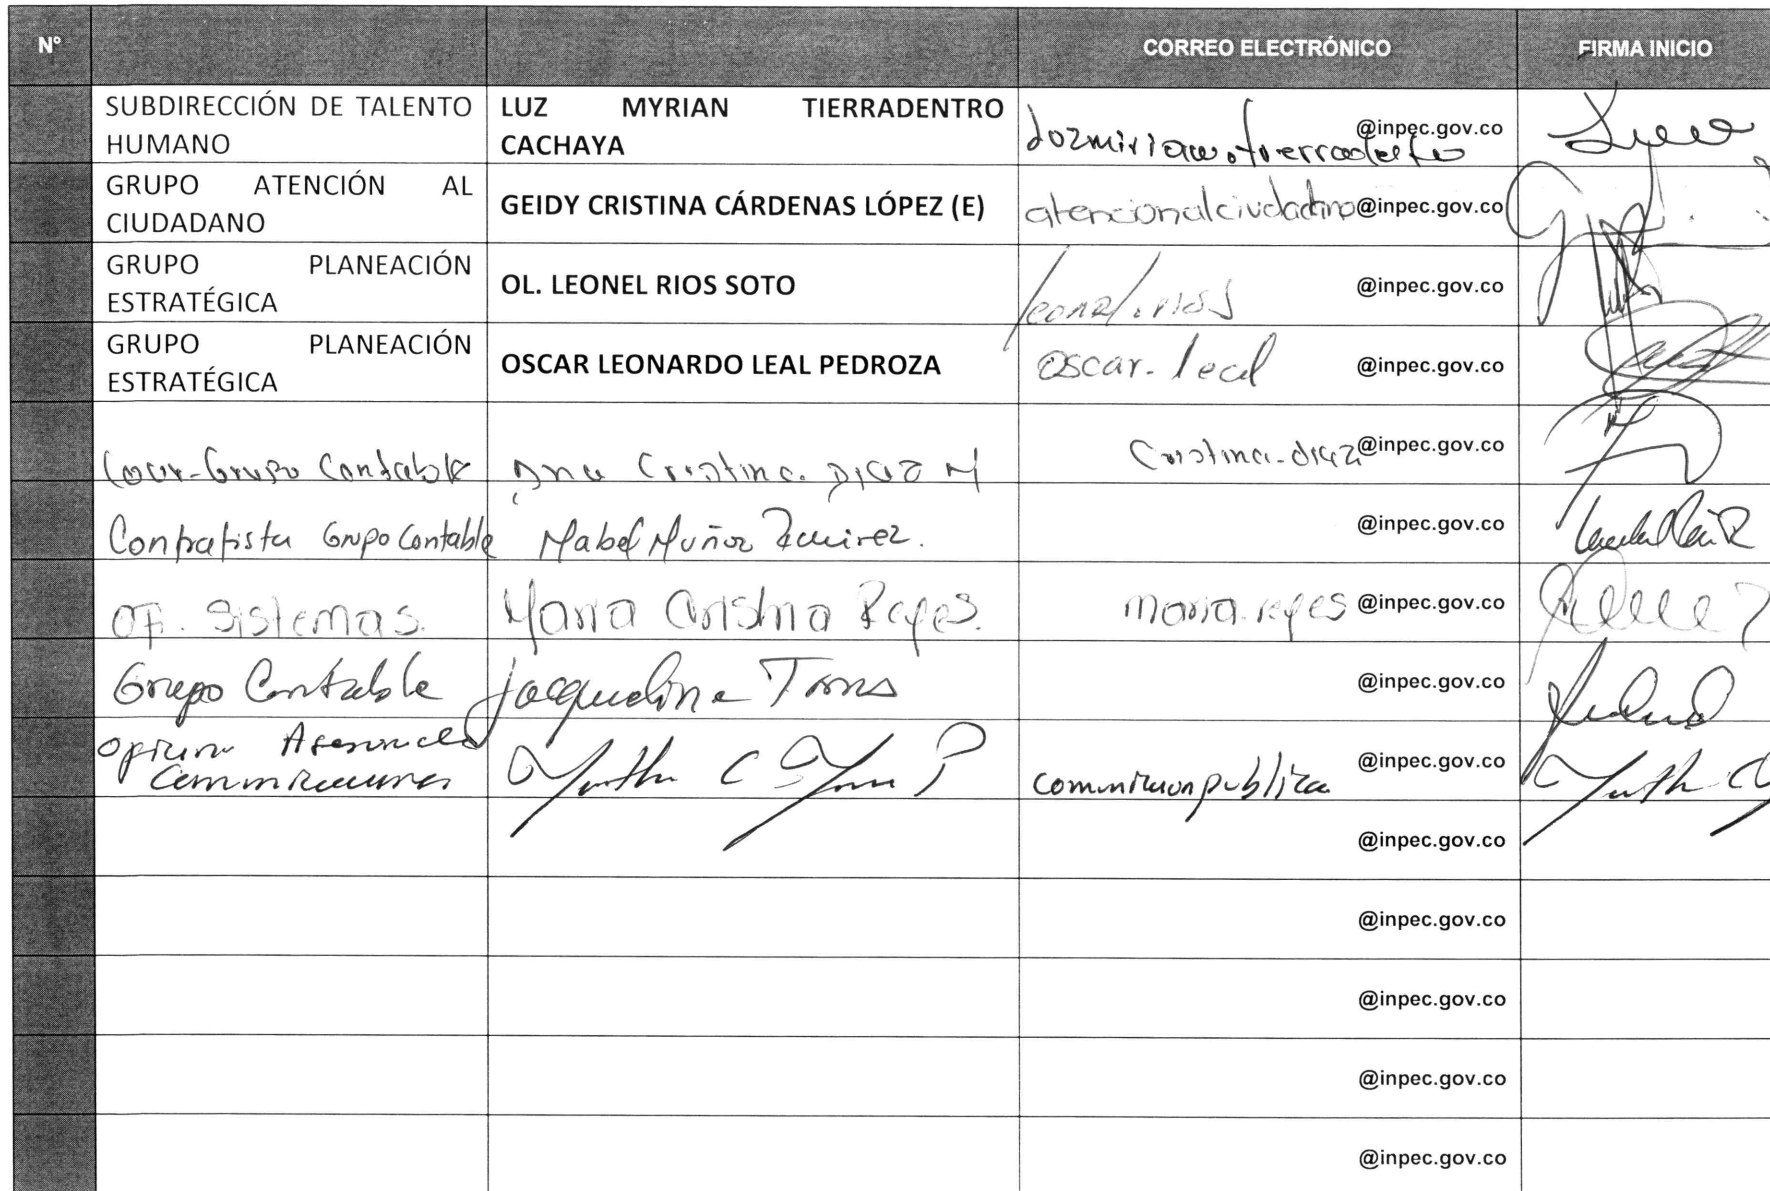 N° CORREO ELECTRÓNICO FIRMA INICIO
SUBDIRECCIÓN DE TALENTO
HUMANO
LUZ MYRIAN TIERRADENTRO
CACHAYA
@inpec.gov.co
GRUPO ATENCIÓN AL
CIUDADANO
GEIDY CRISTINA CÁRDENAS LÓPEZ (E)
atencionalciudadano@inpec.gov.co
GRUPO PLANEACIÓN
ESTRATÉGICA
OL. LEONEL RIOS SOTO
leonel.rios @inpec.gov.co
GRUPO PLANEACIÓN
ESTRATÉGICA
OSCAR LEONARDO LEAL PEDROZA
oscar.leal @inpec.gov.co
Grupo Contable
Ana Cristina Diaz M
Cristina.diaz@inpec.gov.co
Contratista Grupo Contable
Mabel Muñoz Ramirez.
@inpec.gov.co
OF. Sistemas.
Maria Cristina Reyes.
maria.reyes @inpec.gov.co
Grupo Contable
Jacqueline Torres
@inpec.gov.co
Comunicaciones
@inpec.gov.co
@inpec.gov.co
@inpec.gov.co
@inpec.gov.co
@inpec.gov.co
@inpec.gov.co